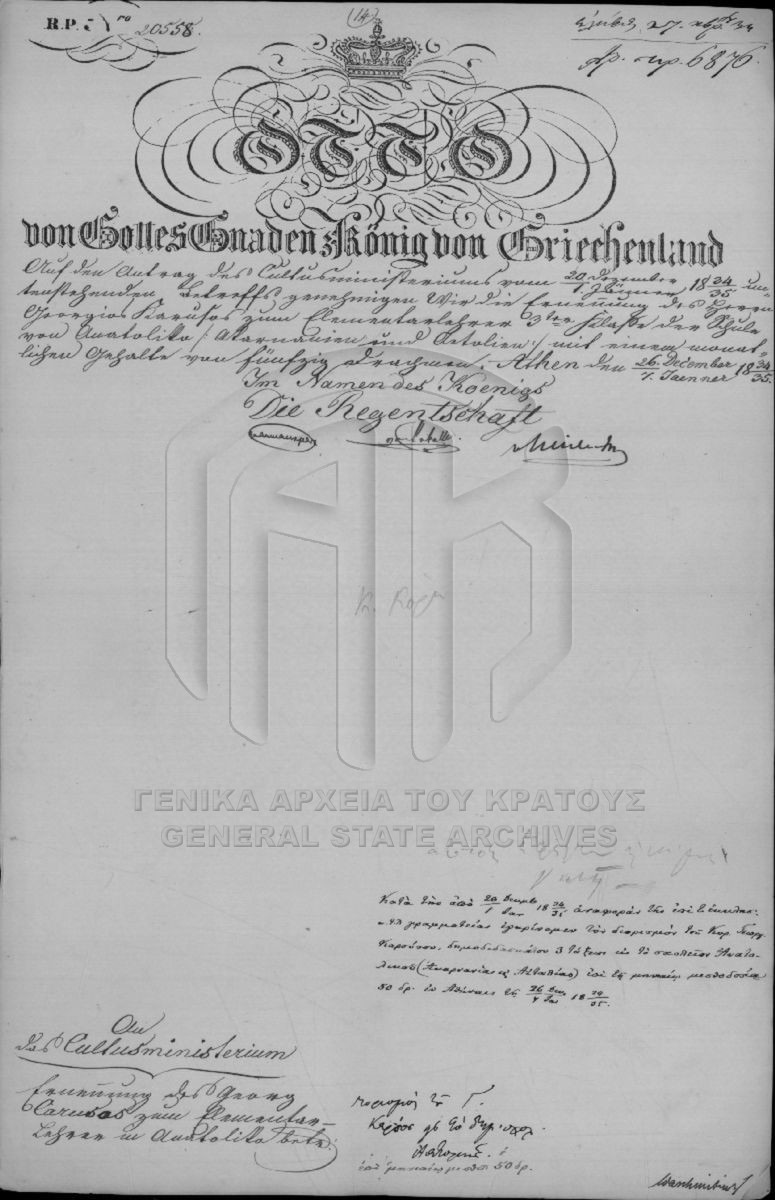 R.P. Nro 20558.
(14)
ἀρ. πρ. 6876.
OTTO
von Gottes Gnaden König von Griechenland
Auf den Antrag des Cultusministeriums vom 20 Dezember / 1. Jänner 18 34/35 un-
tenstehenden Betreffs genehmigen Wir die Ernennung des Herrn
Georgios Karusos zum Elementarlehrer 3ter Klaße der Schule
von Anatoliko /: Akarnanien und Aetolien :/ mit einem monat-
lichen Gehalte von fünfzig Drachmen. Athen den 26. December / 7. Jaenner 18 34/35.
Im Namen des Koenigs
Die Regentschaft
ΓΕΝΙΚΑ ΑΡΧΕΙΑ ΤΟΥ ΚΡΑΤΟΥΣ
GENERAL STATE ARCHIVES
Κατὰ τὴν ἀπὸ 20 Δεκεμβ / 1 Ιαν 18 34/35 ἀναφορὰν τῆς ἐπὶ τ. ἐκκλησ:
κτλ γραμματείας ἐγκρίνομεν τὸν διορισμὸν τοῦ Κυρ. Γεωργ.
Καρούσου, δημοδιδασκάλου 3 τάξεως εἰς τὸ σχολεῖον Ἀνατο-
λικοῦ (Ἀκαρνανίας κ Αἰτωλίας) ἐπὶ τῇ μηνιαίᾳ μισθοδοσίᾳ
50 δρ. ἐν Ἀθήναις τῇ 26 Δεκ / 7 Ιαν 18 34/35.
An
das Cultusministerium
Ernennung des Georg
Carusos zum Elementar-
Lehrer in Anatoliko betr.
διορισμὸς τοῦ Γ.
50 δρ.